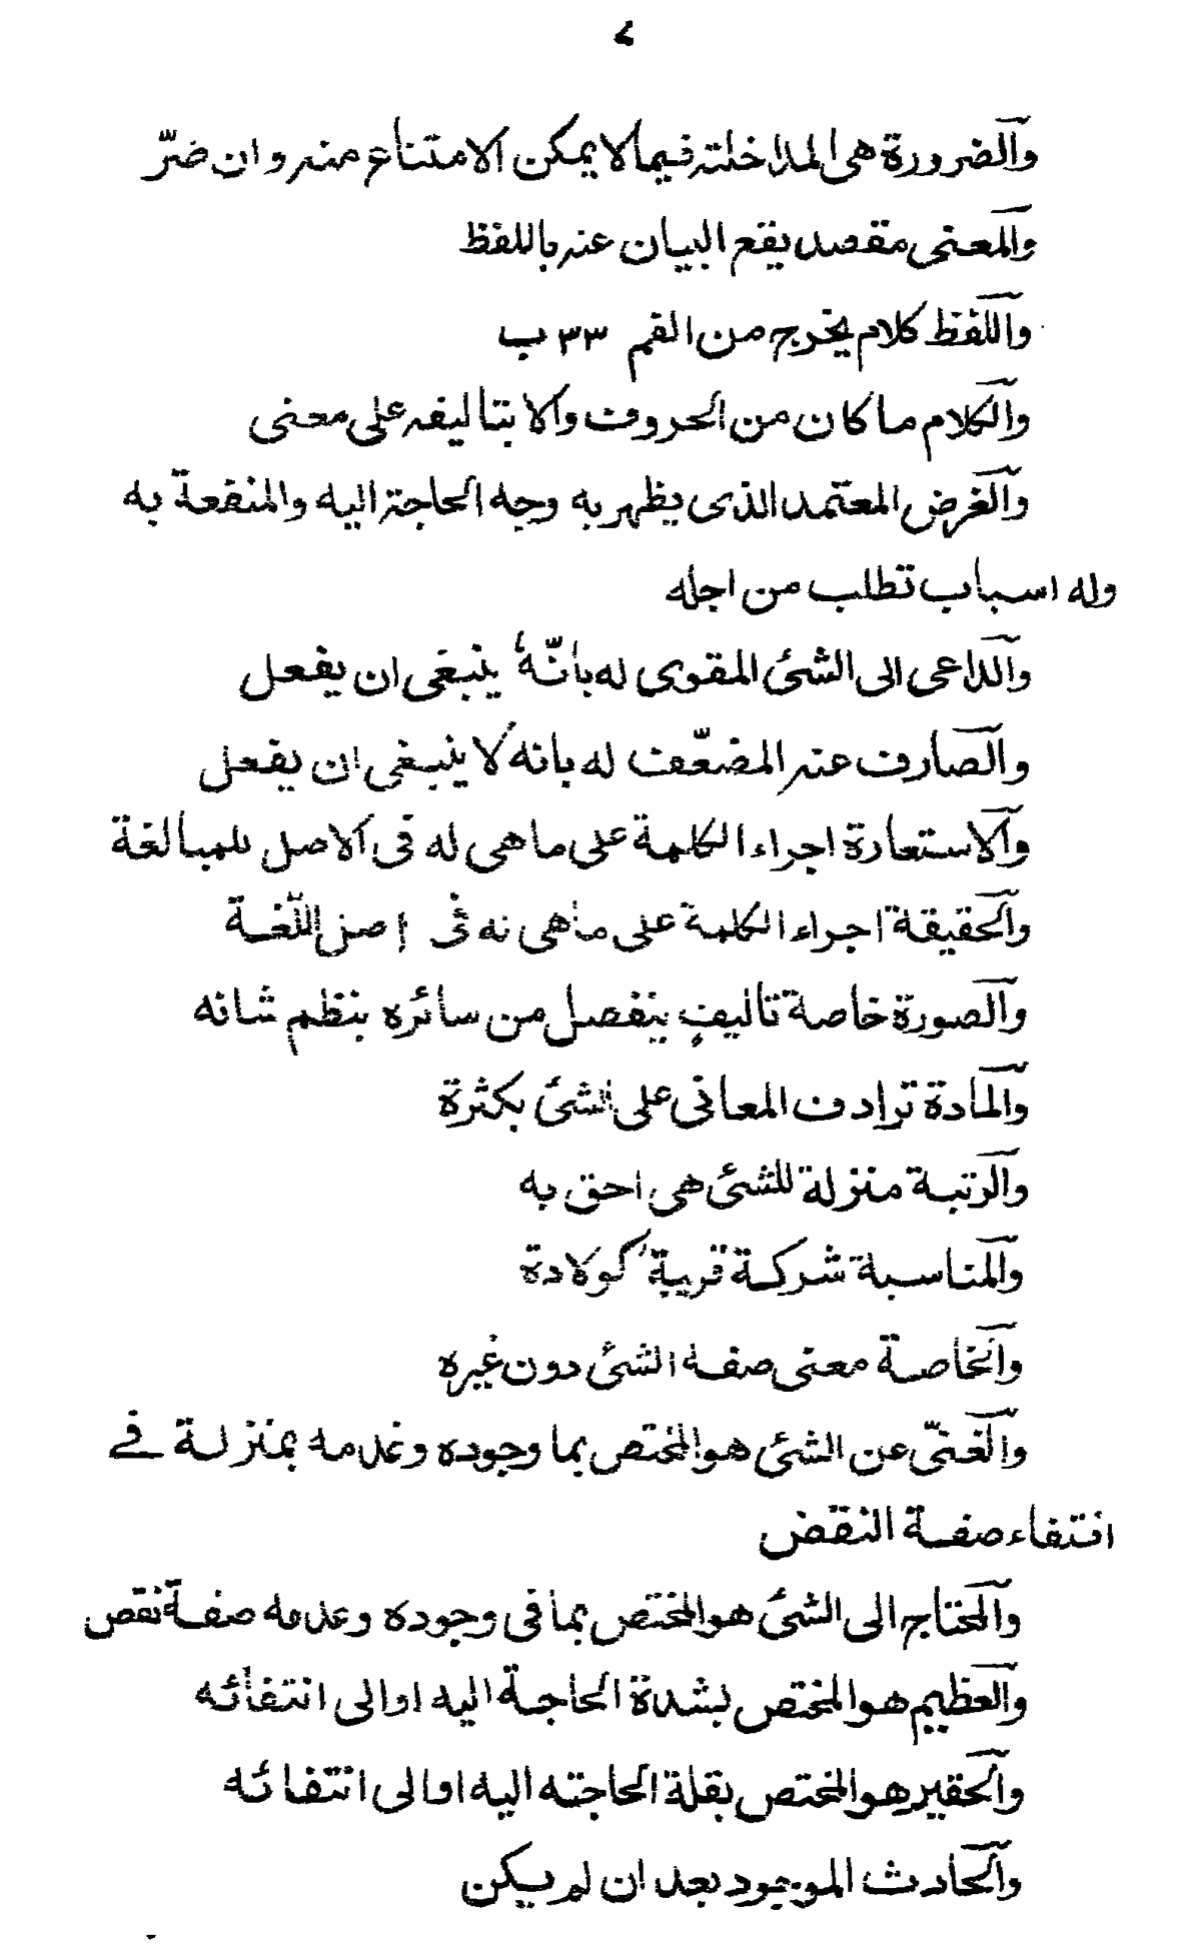 ٧
والضرورة هى المداخلته فيما لا يمكن الامتناع منه وان ضرّ
والمعنى مقصد يقع البيان عنه باللفظ
واللفظ كلام يخرج من الفم ٣٣ ب
والكلام ما كان من الحروف والا بتاليفه على معنى
والغرض المعتمد الذى يظهر به وجه الحاجته اليه والمنفعة به
وله اسباب تطلب من اجله
والداعى الى الشئ المقوى له بانّهُ ينبغى ان يفعل
والصارف عنه المضعّف له بانه لا ينبغى ان يفعل
والاستعارة اجراء الكلمة على ما هى له فى الاصل للمبالغة
والحقيقة اجراء الكلمة على ما هى له فى اصل اللّغة
والصورة خاصة تاليفٍ ينفصل من سائره بنظم شانه
والمادة ترادف المعانى على الشئ بكثرة
والرتبة منزلة للشئ هى احق به
والمناسبة شركة قريبة كولادة
والخاصة معنى صفة الشئ دون غيره
والغنىّ عن الشئ هو المختص بما وجوده وعدمه بمنزلة فے
انتفاء صفة النقض
والمحتاج الى الشئ هو المختص بما فى وجوده وعدمه صفة نقص
والعظيم هو المختص بشدة الحاجة اليه او الى انتفائه
والحقير هو المختص بقلة الحاجته اليه او الى انتفائه
والحادث الموجود بعد ان لم يكن